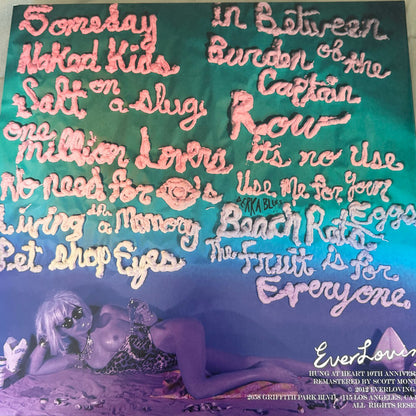 Someday
Naked Kids
Salt on a Slug
one Million Lovers
No Need for
Living in the Memory
Pet Shop Eyes
in Between
Burden of the Captain
Row
it's no use
Use Me for Your Eggs
Beach Rats
The Fruit is for Everyone
EverLovin
HUNG AT HEART 10TH ANNIVER
REMASTERED BY SCOTT MON
© 2012 EVERLOVING
2658 GRIFFITH PARK BLVD. #115 LOS ANGELES, CA
ALL RIGHTS RESE